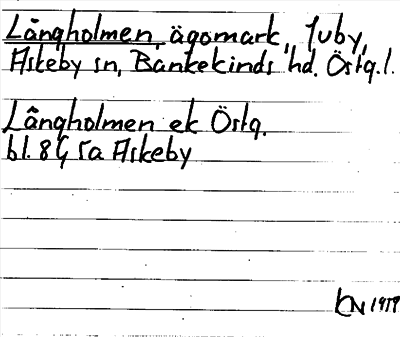 Långholmen, ägomark, Juby,
Askeby sn, Bankekinds hd. Östg.l.
Långholmen ek Östg.
bl. 8G 5a Askeby
KN 1979